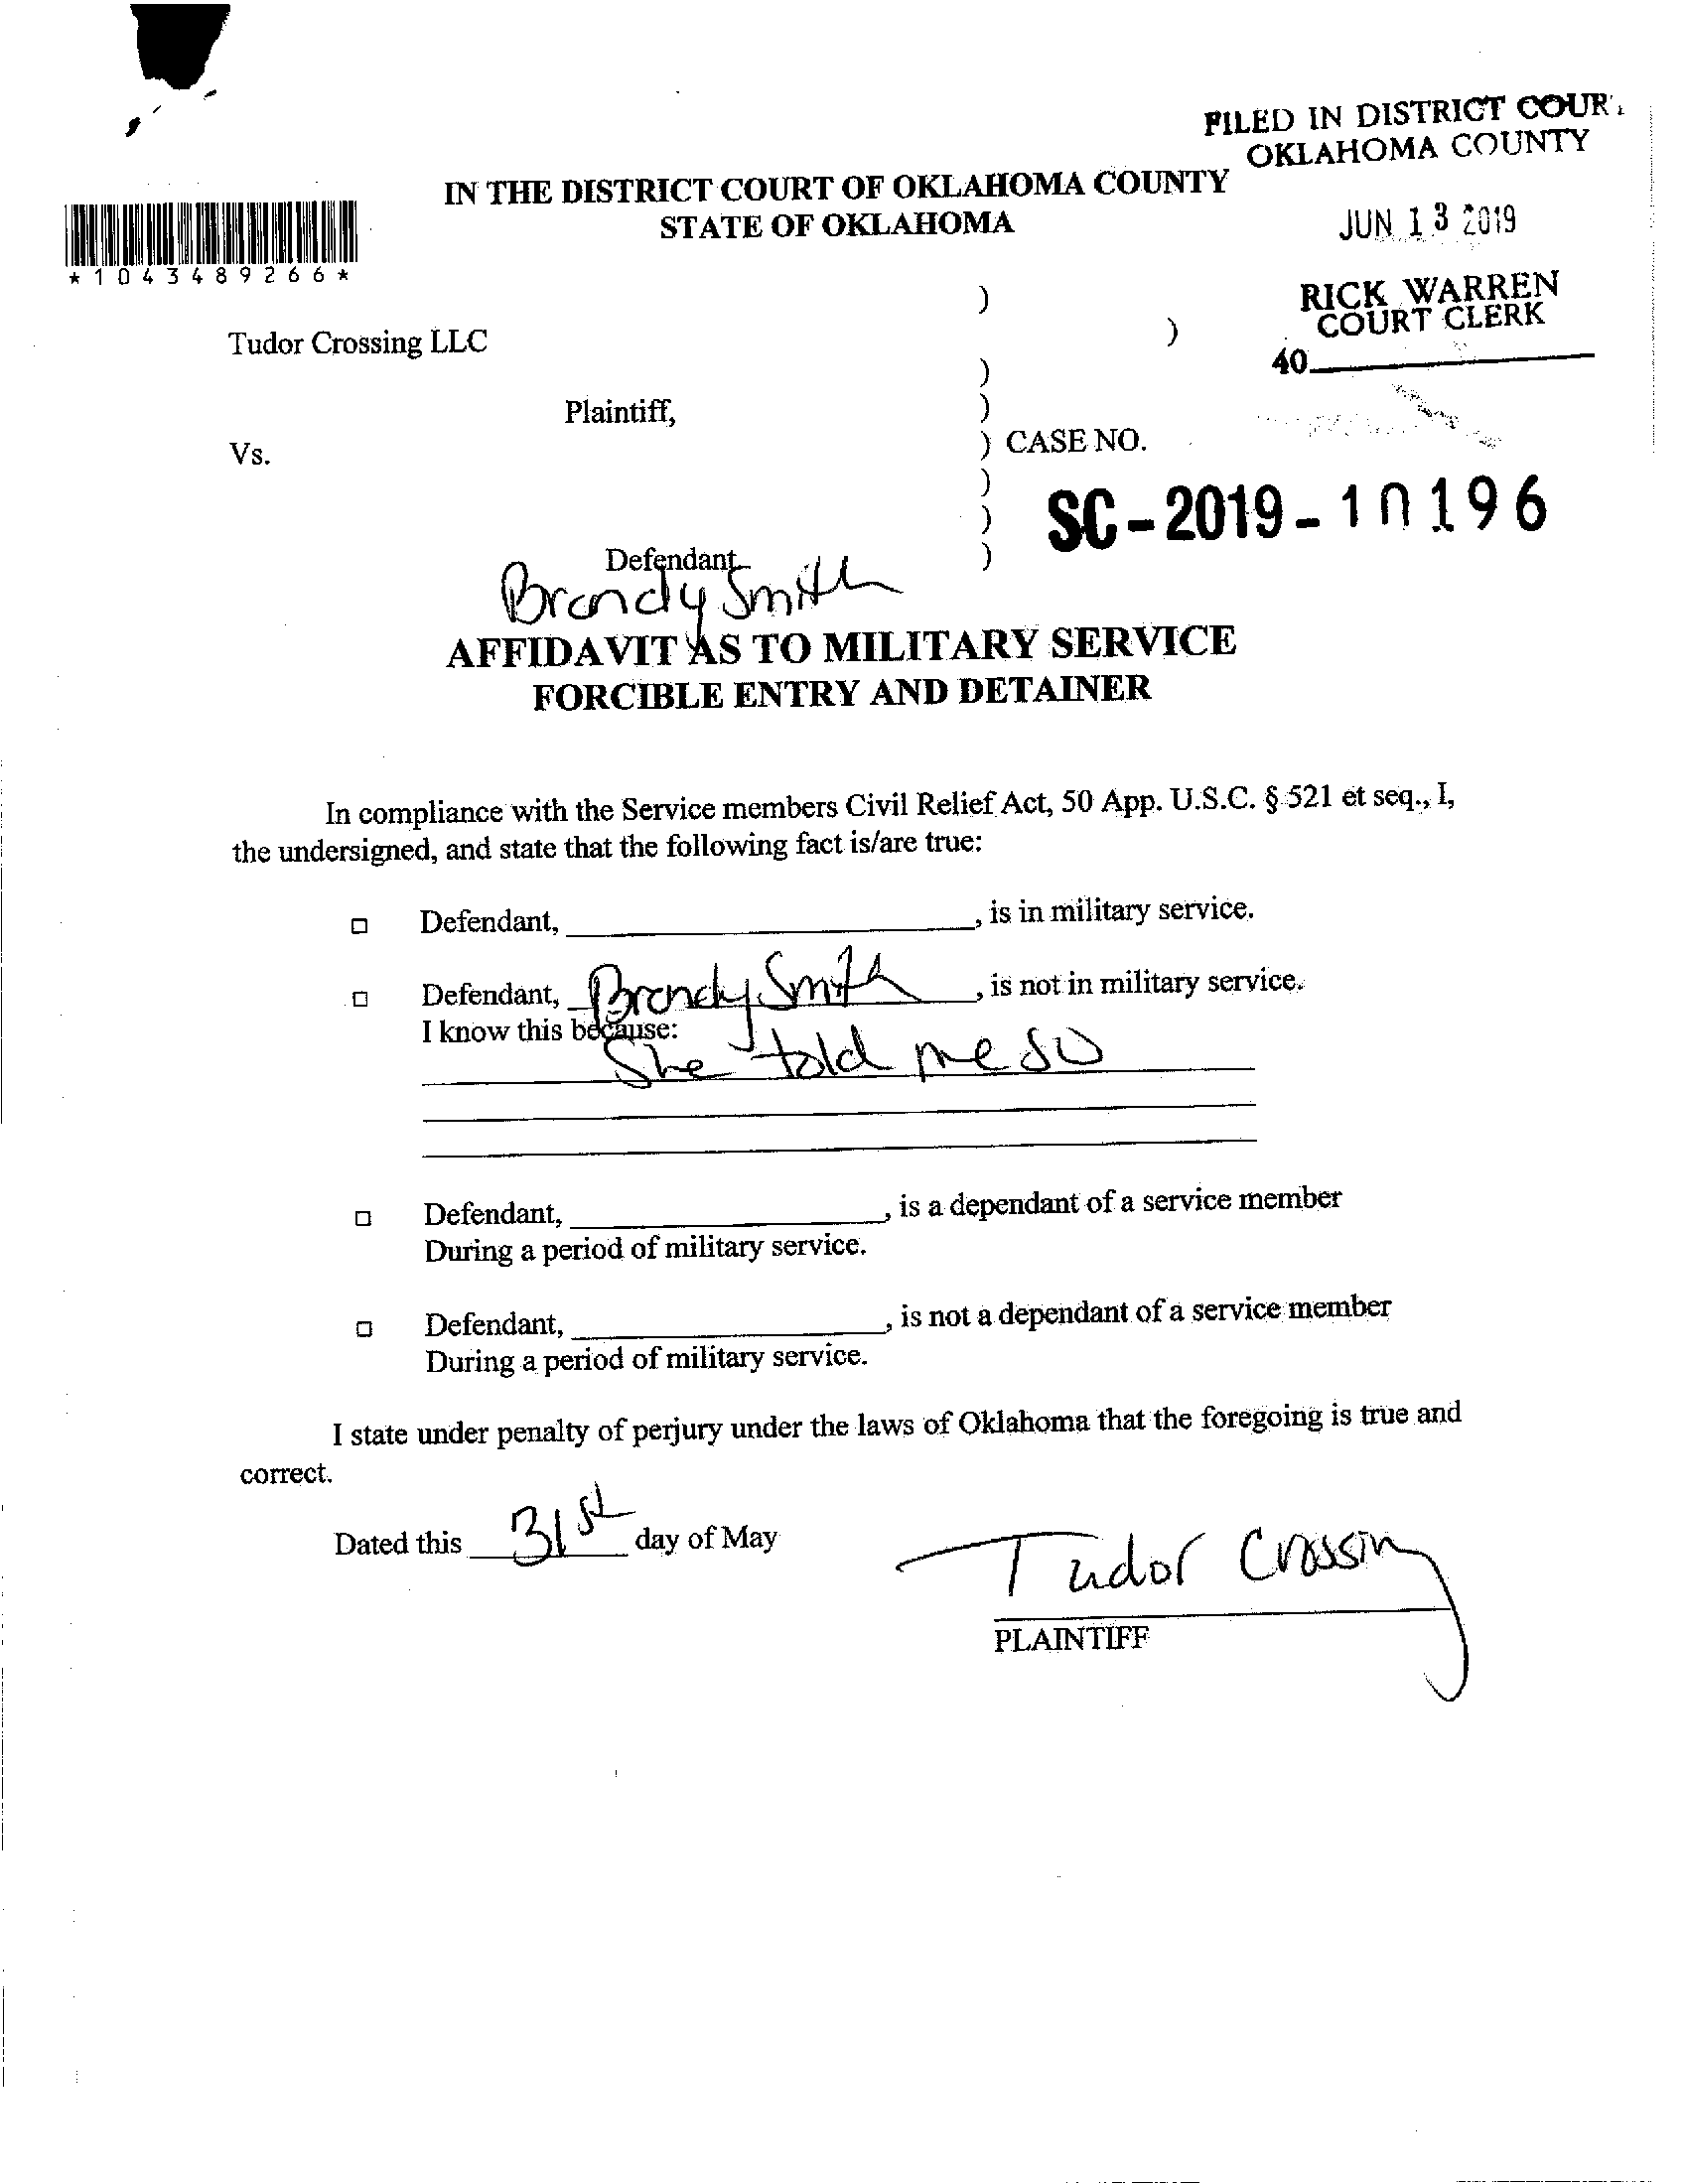 FILED IN DISTRICT COUR
OKLAHOMA COUNTY
IN THE DISTRICT COURT OF OKLAHOMA COUNTY
STATE OF OKLAHOMA
JUN 13 2019
*1043489266*
RICK WARREN
COURT CLERK
40
)
Tudor Crossing LLC )
)
Plaintiff, )
Vs. ) CASE NO.
)
) SC-2019-10196
Defendant )
Brandy Smith
AFFIDAVIT AS TO MILITARY SERVICE
FORCIBLE ENTRY AND DETAINER
In compliance with the Service members Civil Relief Act, 50 App. U.S.C. § 521 et seq., I,
the undersigned, and state that the following fact is/are true:
□ Defendant, ____________, is in military service.
□ Defendant, Brandy Smith, is not in military service.
I know this because:
She told me so
□ Defendant, ____________, is a dependant of a service member
During a period of military service.
□ Defendant, ____________, is not a dependant of a service member
During a period of military service.
I state under penalty of perjury under the laws of Oklahoma that the foregoing is true and
correct.
Dated this 31st day of May
Tudor Crossing
PLAINTIFF